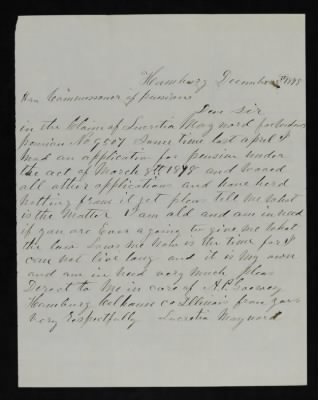 Hamburg December 1878
Hon Commissioner of pensions
Dear Sir
in the Claim of Lucretia Maynord for
pension No 9587 Some time last april I
mad an application for pension under
the act of March 9th 1878 and waved
all other applications and have herd
nothing from it yet pleas tell me what
is the Matter I am old and am in need
if you are Ever a going to give me what
the law Laws me Now is the time for I
can not live long and it is my own
and am in need very much pleas
Derect to Me in care of A.P.
Hamburg Calhoune co Illinois from yours
very Respectfully Lucretia Maynord